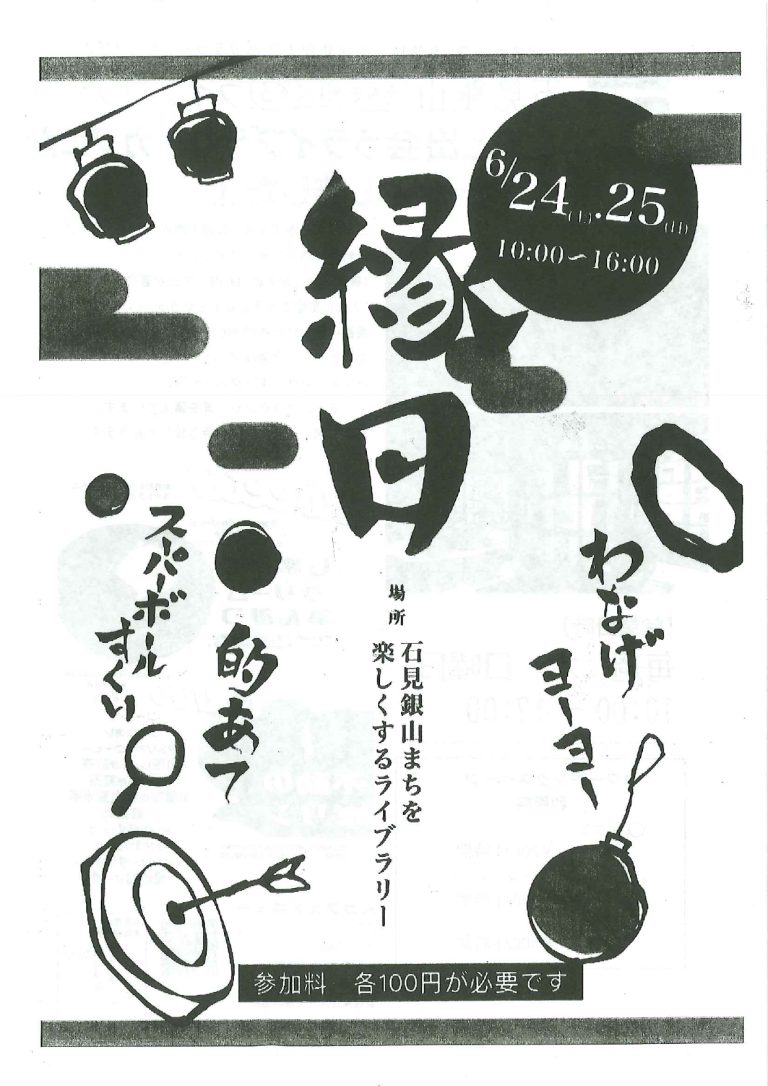 6/24(土).25(日)
10:00〜16:00
縁日
わなげ
ヨーヨー
場所
石見銀山まちを
楽しくするライブラリー
的あて
スーパーボール
すくい
参加料 各100円が必要です